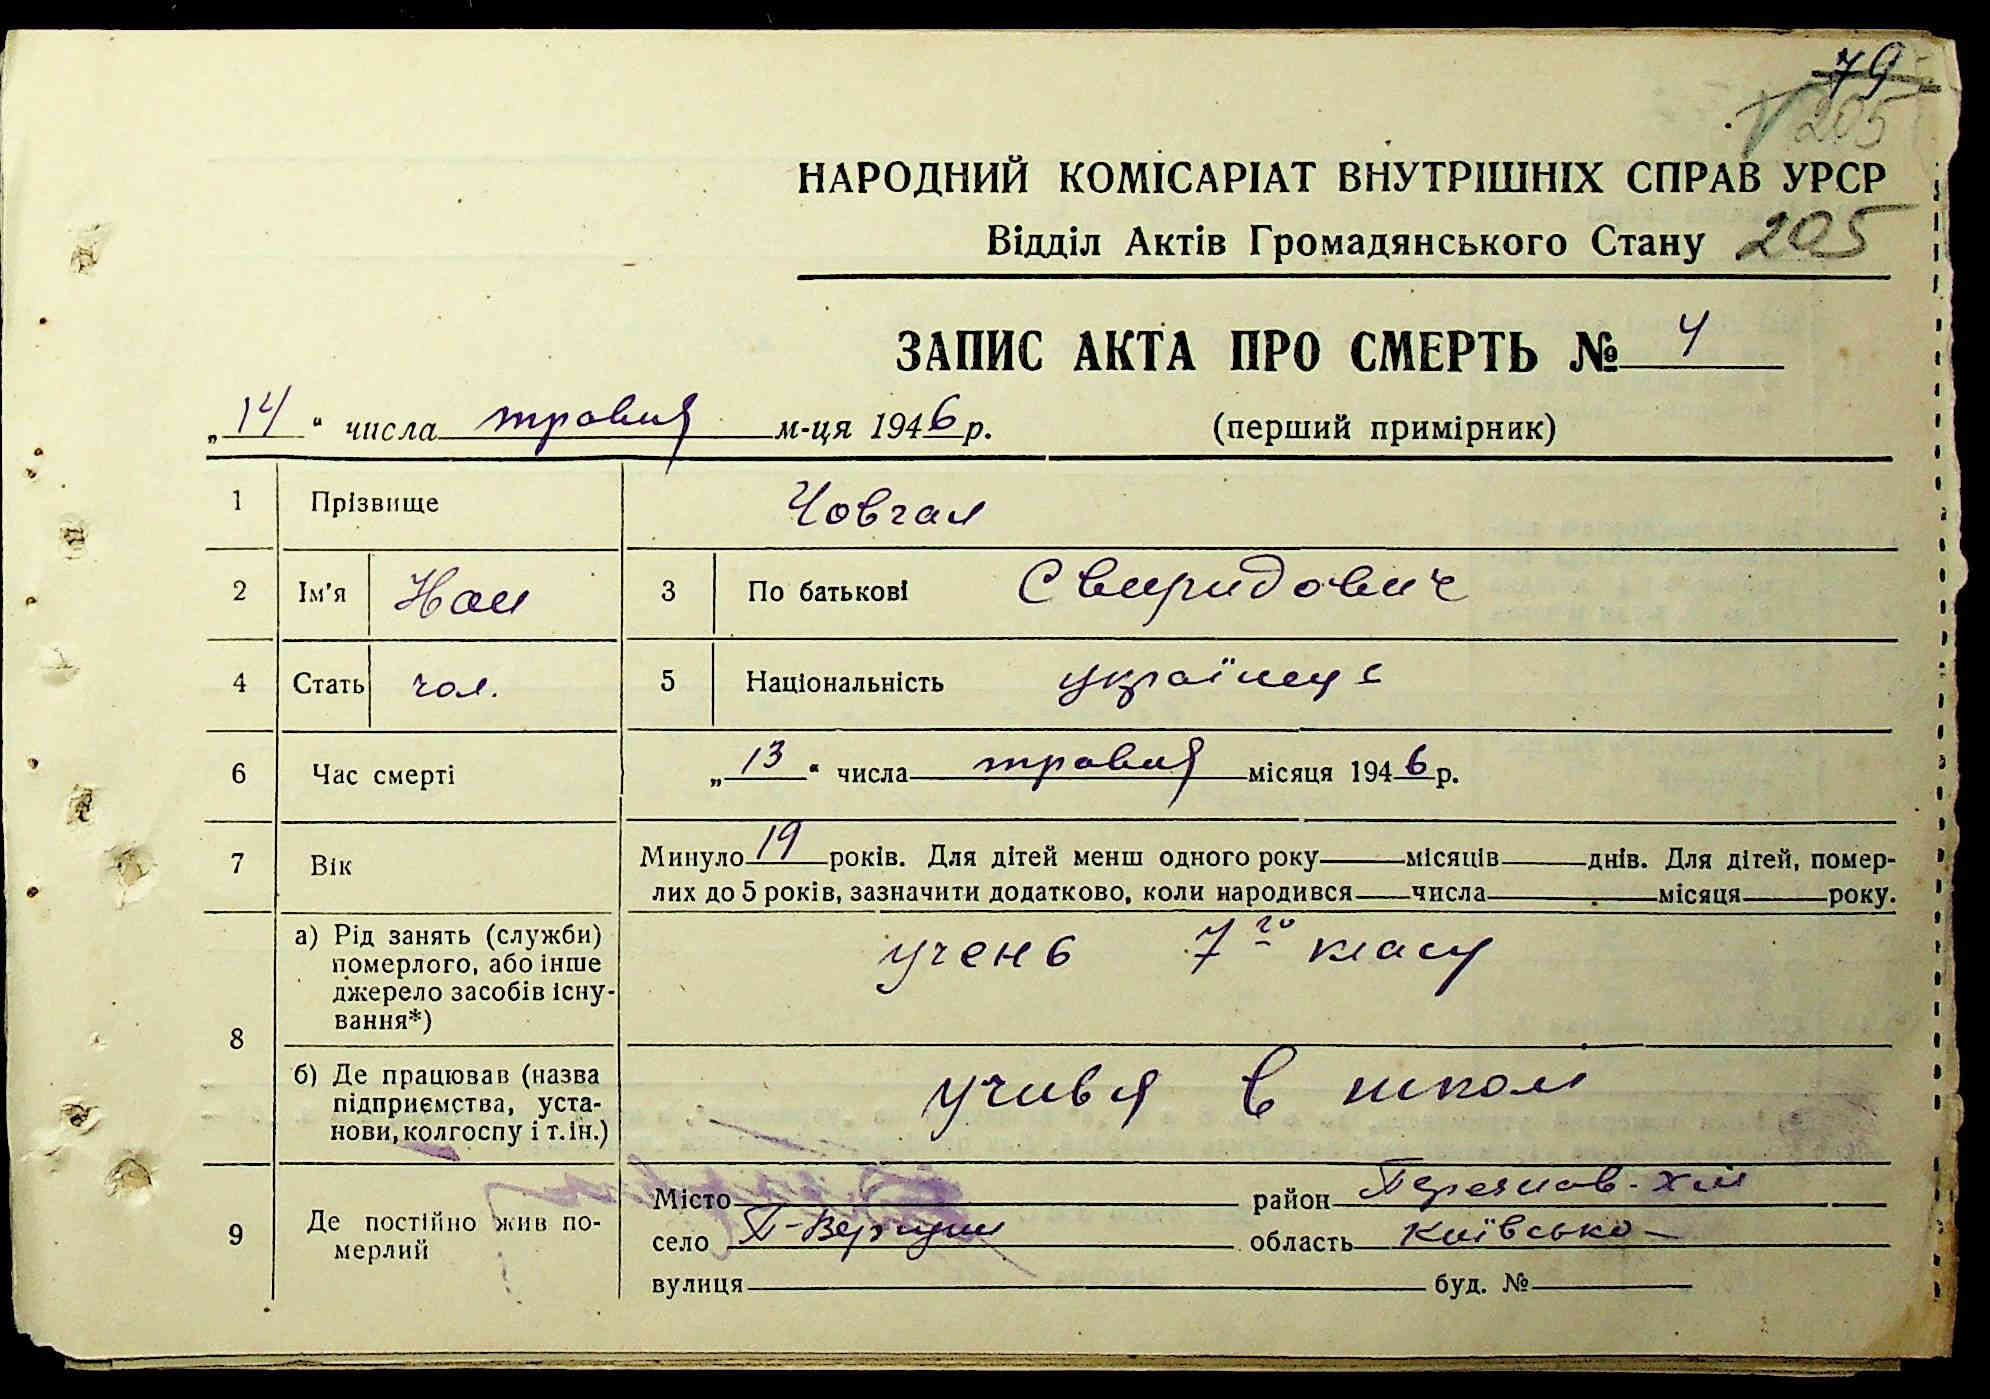 79
205
НАРОДНИЙ КОМІСАРІАТ ВНУТРІШНІХ СПРАВ УРСР
Відділ Актів Громадянського Стану 205
ЗАПИС АКТА ПРО СМЕРТЬ № 4
„14“ числа травня м-ця 1946 р. (перший примірник)
1 Прізвище Човгал
2 Ім'я 3 По батькові Свиридович
4 Стать чол. 5 Національність українець
6 Час смерті „13“ числа травня місяця 1946 р.
7 Вік Минуло 19 років. Для дітей менш одного року місяців днів. Для дітей, помер-
лих до 5 років, зазначити додатково, коли народився числа місяця року.
8 а) Рід занять (служби) померлого, або інше джерело засобів існу-вання*) учень 7го класу
б) Де працював (назва підприємства, уста-нови, колгоспу і т. ін.) учився в школі
9 Де постійно жив по-мерлий Місто район Переяслав-Хм
село область Київсько
вулиця буд. №